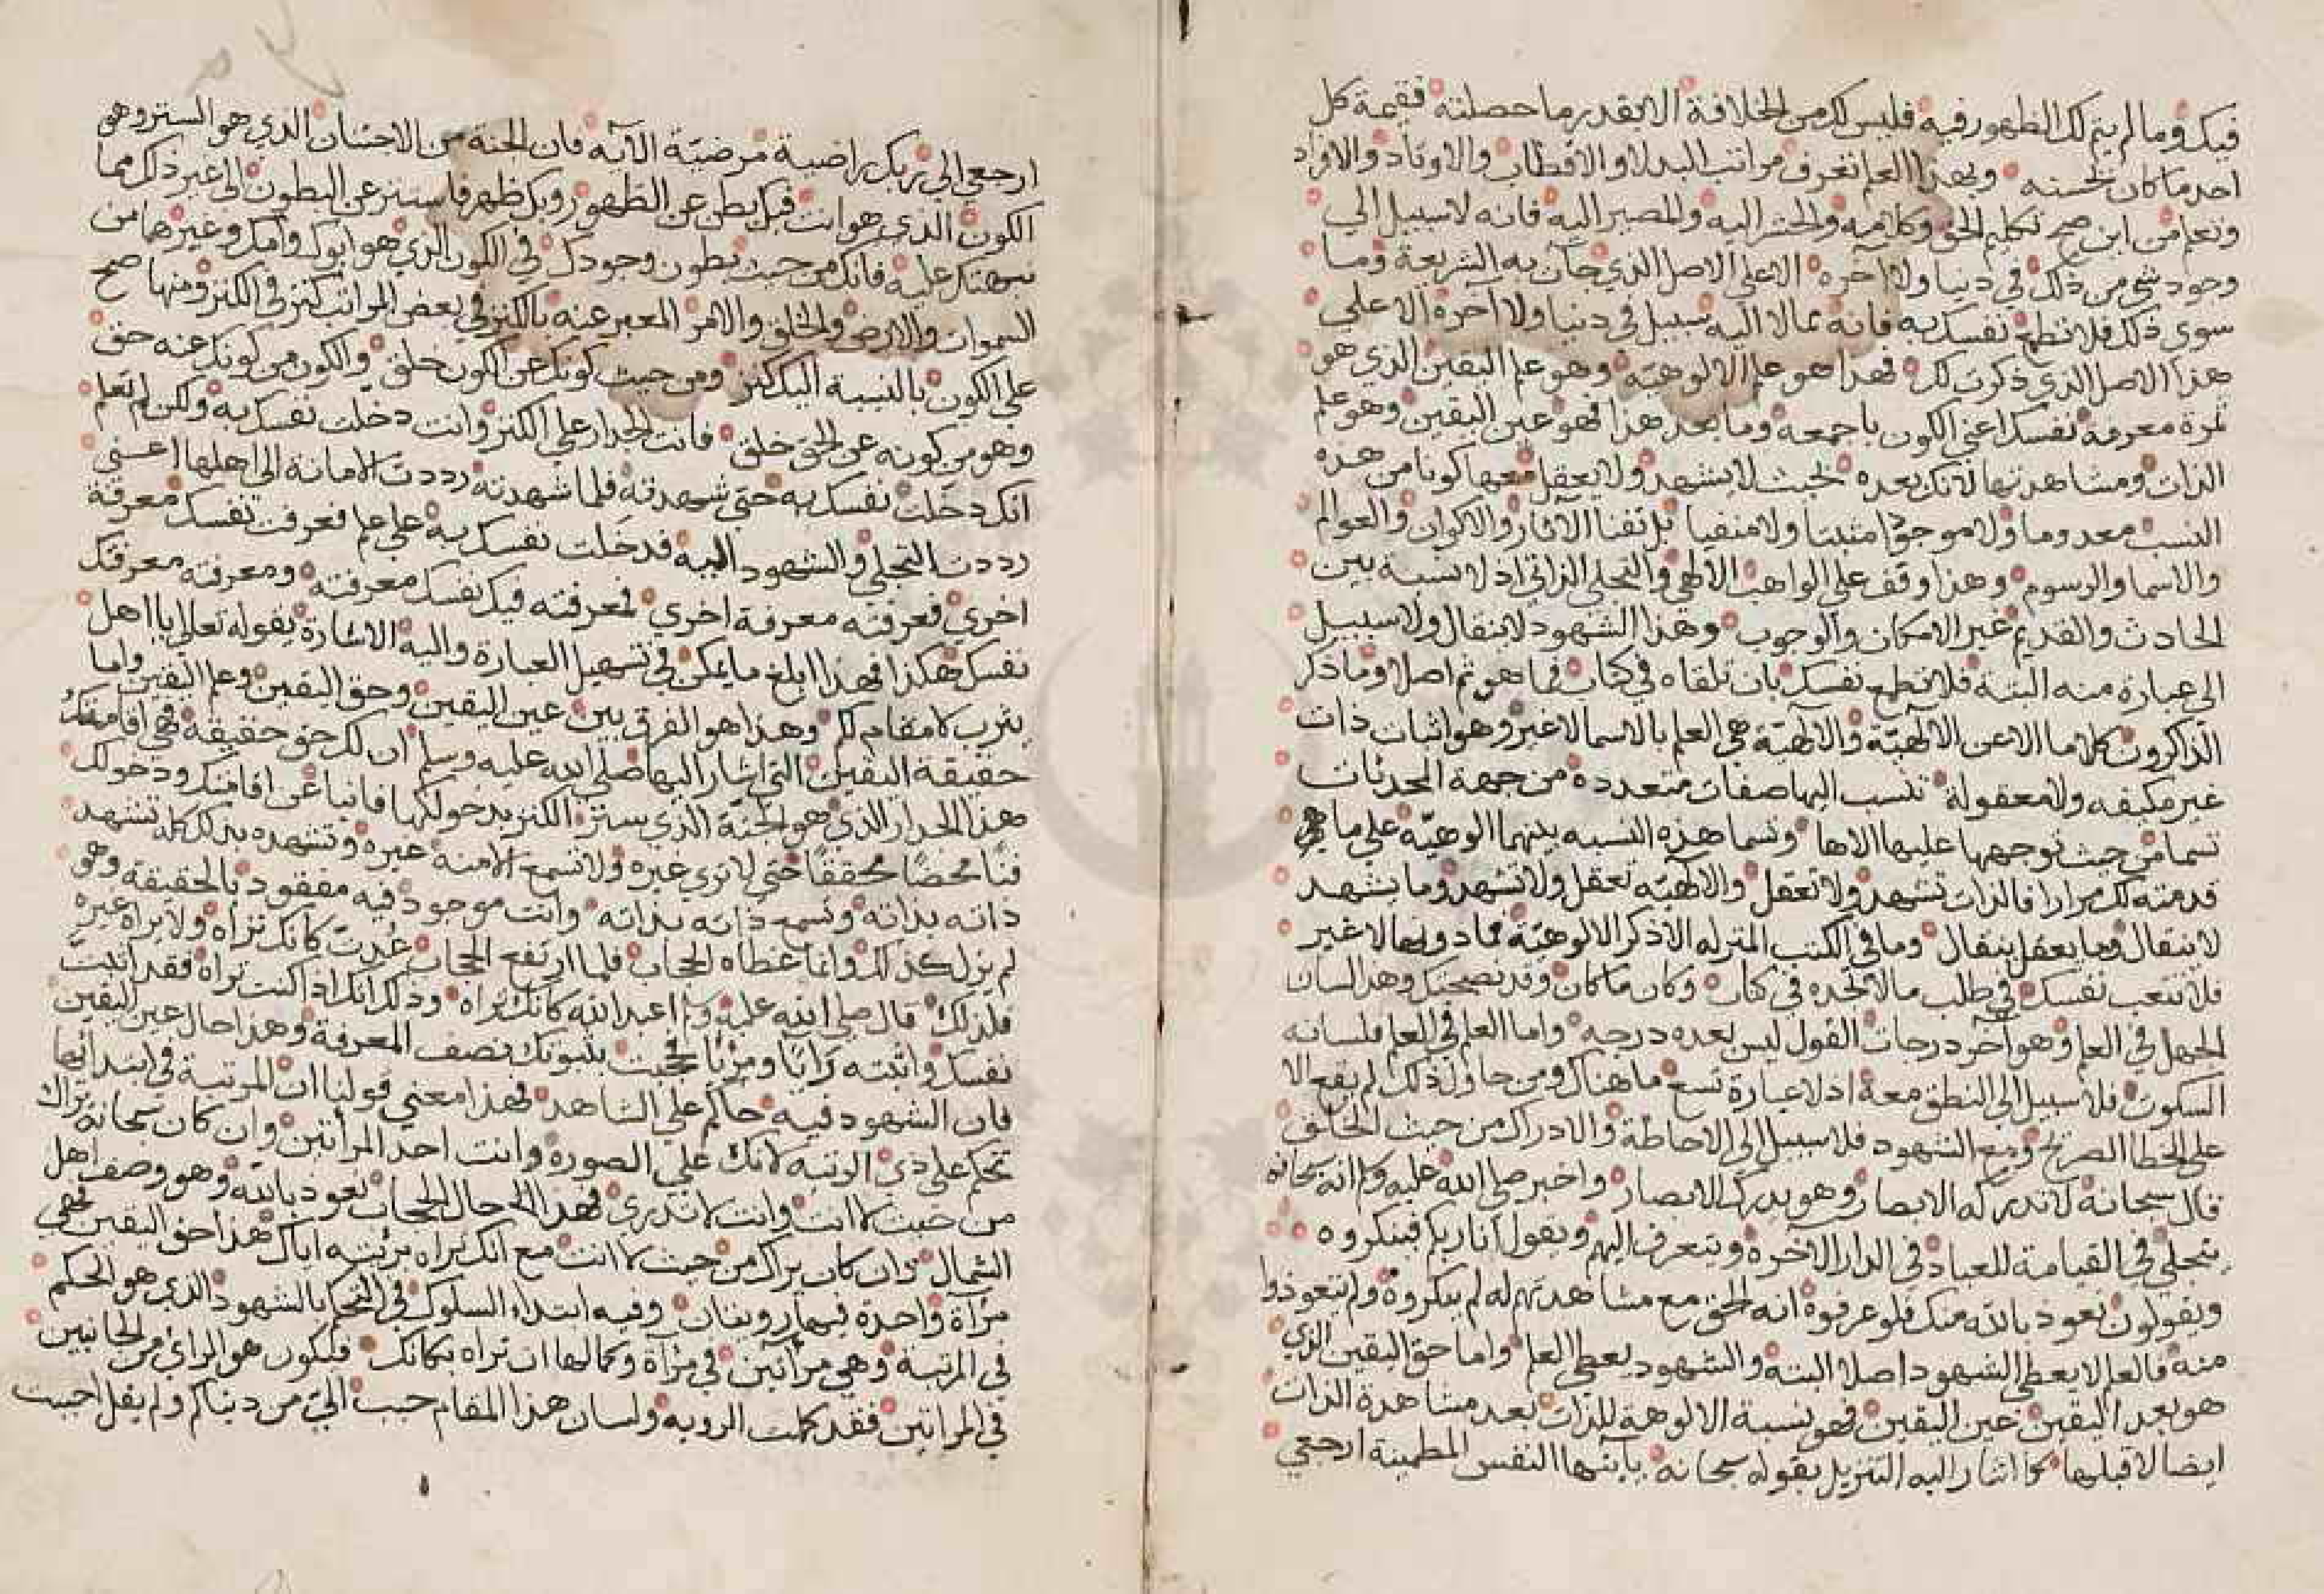 فيك وما لم يتم لك الظهور فيه فليس لك من الخلافة الا بقدر ما حصلته فقيمة كل
احد ما كان يحسنه وبهذا العلم تعرف مراتب البدلا والاقطاب والاوتاد والافراد
وتعلم من اين صح تكليم الحق وكلامه والحشر اليه والمصير اليه فانه لا سبيل الي
وجود شي من ذلك في دنيا ولا اخره الا علي الاصل الذي جآت به الشريعة وما
سوي ذلك فلا تطمع نفسك به فانه مما لا اليه سبيل في دنيا ولا اخرة الا علي
هذا الاصل الذي ذكرت لك فهذا هو علم الالوهيه وهو علم اليقين الذي هو
ثمرة معرفة نفسك اعني الكون باجمعه وما بعد هذا فهو عين اليقين وهو علم
الذات ومشاهدتها لانك بعده بحيث لا يشهد ولا يعقل معها كونا من هذه
النسب معدوما ولا موجودا مثبتا ولا منفيا بل تفنا الاثار والاكوان والعوالم
والاسما والرسوم وهذا وقف علي الواهب الالهي والتجلي الذاتي اذ لا نسبة بين
الحادث والقديم غير الامكان والوجوب وهذا الشهود لا ينقال ولا سبيل
الى عبارة منه البتة فلا تطمع نفسك بان تلقاه في كتاب فما هو ثم اصلا وما ذكر
الذاكرون كلاما الا عن الالهية والالهية هي العلم بالاسما لا غير وهو اثبات ذات
غير مكيفه ولا معقولة تنسب اليها صفات متعددة من جهة المحدثات
تسما من حيث توجهها عليها الاها وتسما هذه النسبه بينهما الوهيّة علي ما
قدمته لك مرارا فالذات تشهد ولا تعقل والالهيّه تعقل ولا تشهد وما يشهد
لا ينقال وما يعقل ينقال وما في الكتب المنزله الا ذكر الالوهيّة فما دونها لا غير
فلا تتعب نفسك في طلب ما لا تجده في كتاب وكان ما كان وقد نصحتك وهذا لسان
الجهل في العلم وهو آخر درجات القول ليس بعده درجه واما العلم في العلم فلسانه
السكوت فلا سبيل الى النطق معه اذ لا عبارة تسع ما هناك ومن حاول ذلك لم يقع الا
علي الخطا الصريح ومع الشهود فلا سبيل الى الاحاطة والادراك من حيث الخلق
قال سبحانه لا تدركه الابصار وهو يدرك الابصار واخبر صلي الله عليه وسلم انه سبحانه
يتجلي في القيامة للعباد في الدار الآخرة ويتعرف اليهم ويقول انا ربكم فينكروه
ويقولون نعوذ بالله منك فلو عرفوه انه الحق مع مشاهدتهم له لم ينكروه ولم يتعوذوا
منه فالعلم لا يعطي الشهود اصلا البتة والشهود يعطي العلم واما حق اليقين الذي
هو بعد اليقين عين اليقين فهو نسبة الالوهة للذات بعد مشاهدة الذات
ايضا لا قبلها كما اشار اليه التنزيل بقوله سبحانه يايتها النفس المطمينة ارجعي
ارجعي الى ربك راضية مرضيّة الآيه فان الجنة من الاجتنان الذي هو الستر وهو
الكون الذي هو انت فبك بطن عن الظهور وبك ظهر فاستتر عن البطون الى غير ذلك مما
نبهتك عليه فانك من حيث بطون وجودك في الكون الذي هو ابوك وامك وغيرهما من
السموات والارض والخلق والامر المعبر عنه بالكنز في بعض المراتب كنز في الكنز ومنها صح
علي الكون بالنسبة اليك كنز ومن حيث كونك عن الكون خلق والكون من كونك عنه حق
وهو من كونه عن الحق خلق فانت الجدار علي الكنز وانت دخلت نفسك به ولكن لم تعلم
انك دخلت نفسك به حتى شهدته فلما شهدته رددت الامانة الى اهلها اعني
رددت التجلي والشهود اليه فدخلت نفسك به علي علم فعرفت نفسك معرفة
اخري فعرفته معرفة اخري فمعرفته فيك نفسك معرفته ومعرفته معرفتك
نفسك هكذا فهذا ابلغ ما يمكن في تسهيل العبارة واليه الاشارة بقوله تعالي يا اهل
يثرب لا مقام لكم وهذا هو الفرق بين عين اليقين وحق اليقين وعلم اليقين واما
حقيقة اليقين التي اشار اليها صلى الله عليه وسلم ان لكل حق حقيقة فهي افا منك
هذا الجدار الذي هو الجنّة الذي يستر الكنز بدخولكها فانيا عن افا منك ودخولك
فنًا محضًا محققًا حتى لا تري غيره ولا تسمع الا منه غيره وتشهده بذلك كله تشهد
ذاته بذاته وتسمع ذاته بذاته وانت موجود فيه مفقود بالحقيقة وهو
لم يزل كذلك وانما غطاه الحجاب فلما ارتفع الحجاب عُدت كانك تراه ولا يراه غيره
فلذلك قال صلي الله عليه وسلم اعبد الله كانك تراه وذلك انك اذا كنت تراه فقد اثبتّ
نفسك واثبته رَايًا ومرئيًا فحجبت بثبوتك نصف المعرفة وهذا حال عين اليقين
فان الشهود فيه حاكم علي الشاهد فهذا معني قولنا ان المرتبة في ابتدائها
تحكم علي ذي الرتبه لانك علي الصورة وانت احد المرآتين وان كان سبحانه يراك
من حيث لا انت وانت لا تدري فهذا الحال الحجاب نعوذ بالله وهو وصف اهل
الشمال وان كان يراك من حيث لا انت مع انك تراه برئيته اياك هذا حق اليقين فهي
مرآة واحدة فيها رويتان وفيه ابتداء السلوك في التحكم بالشهود الذي هو الحكم
في المرتبة وهي مرآتين في مرآة وكمالها ان تراه بكانك فيكون هو الرائ من الجانبين
في المراتين فقد كملت الرويه ولسان هذا المقام حبب الي من دنياكم ولم يقل احببت